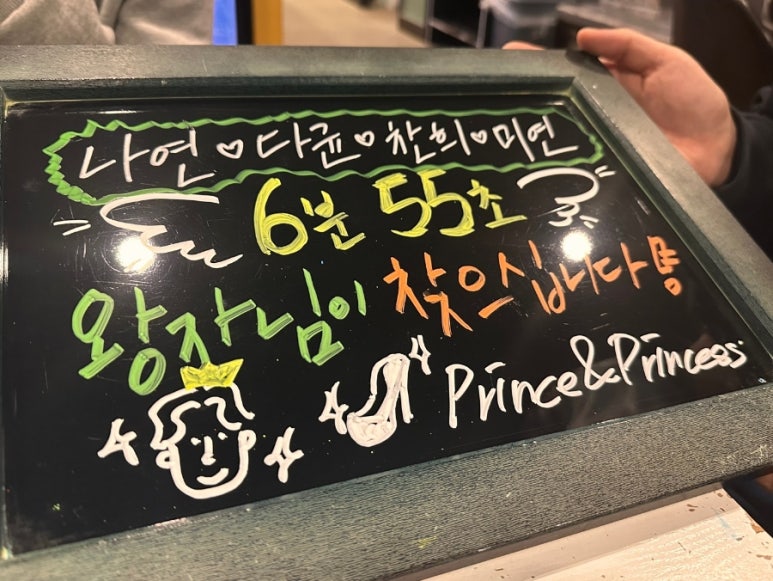 나연♡다균♡찬희♡미연
6분 55초
왕자님이 찾으십니다!
Prince&Princess